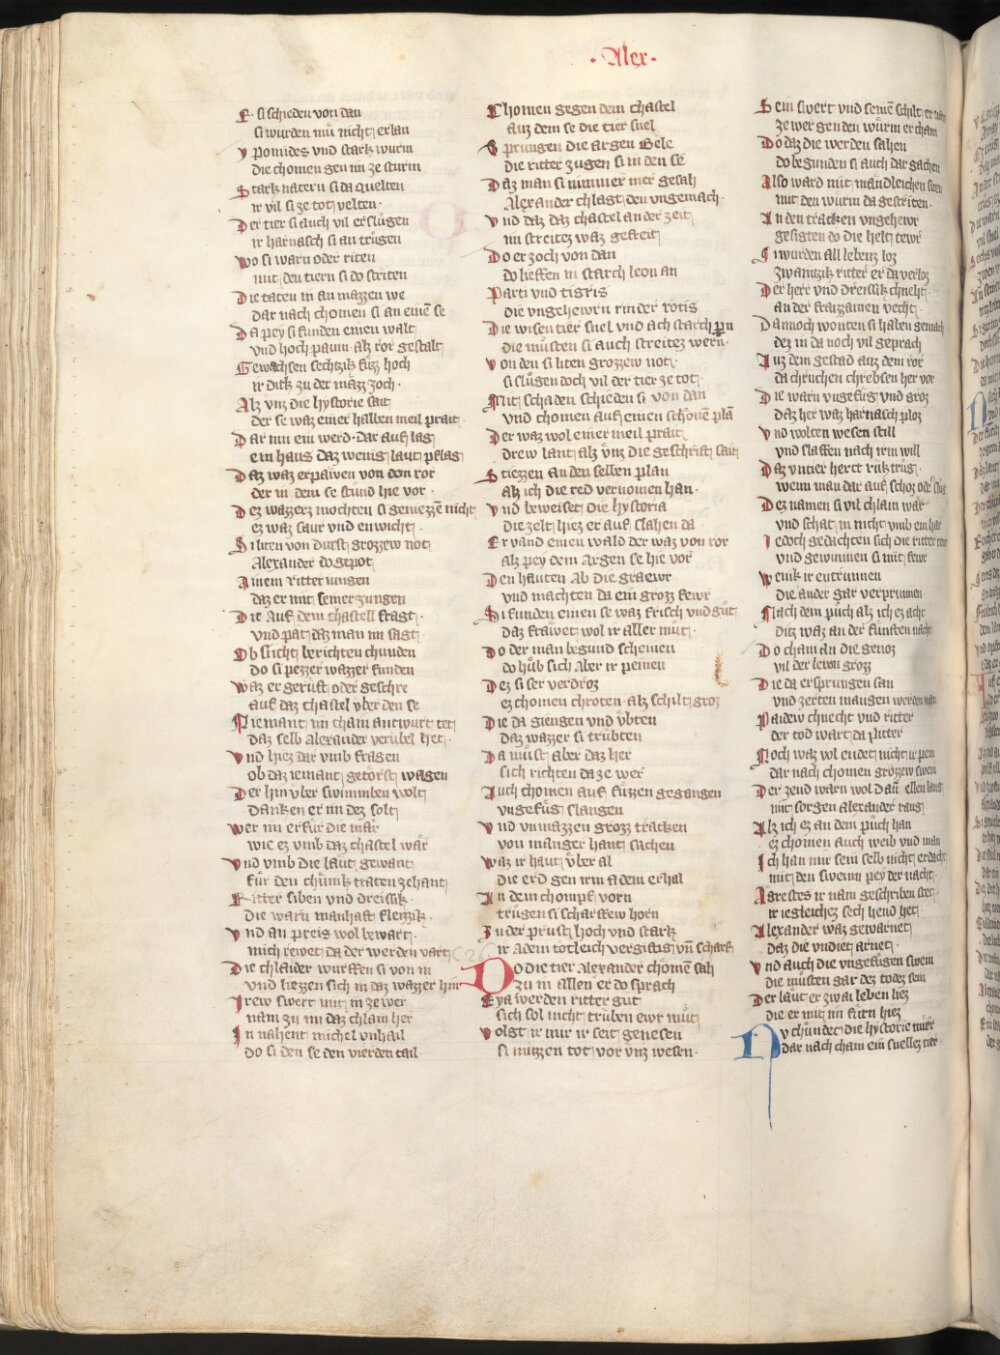 · Alex ·
E si schieden von dan
si wurden nű nicht erlan
Ypomides vnd stark wurm
die chomen gen im ze sturm
Stark natern si da quelten
ir vil si ze tot velten ·
Der tier si auch vil erslůgen
ir harnasch si an trůgen
Wo si warn oder riten
mit den tiern si do striten
Die taten in an mazzen we
dar nach chomen si an einē se
Da pey si funden einen walt
vnd hoch paum als ror gestalt
Gewachsen sechtzik fůzz hoch
ir dik zu der mazz zoch ·
Alz vnz die hystorie sait
der se waz einer halben meil prait
Dar inn ein werd · dar auf lag
ein haus daz wenig laut pflag
Daz waz erpawen von don ror
der in dem se stund hie vor ·
Dez wazzerz mochten si geniezzē nicht
ez waz saur vnd enwicht ·
Si liten von durst grozzew not
Alexander do gepot
Ainem ritter iungen
daz er mit seiner zungen
Die auf dem chastell fragt
vnd pat daz man im sagt
Ob si icht berichten chunden
do si pezzer wazzer funden
Waz er geruft oder geschre
auf daz chastel vber den se
Niemant im cham antwurt tet
daz selb Alexander verubel het ·
Vnd hiez dar vmb fragen
ob daz iemant getorst wagen
Der hin vber swimmben wolt
danken er im dez solt
Wer im erfůr die mär
wie ez vmb daz chastel wär
Vnd vmb die laut gewant
für den chůnik traten zehant
Ritter siben vnd dreissik
die warn manhaft fleizzik ·
Vnd an preis wol bewart
mich rewet da der werden vart
Die chlaider wurffen si von in
vnd liezzen sich in daz wazzer hin
Irew swert mit in ze wer
nam zu im daz chlam her
In nahent michel vnhail
do si den se den vierden tail ·
Chomen gegen dem chastel
auz dem se die tier snel
Sprungen die argen Bele
die ritter zugen si in den se
Daz man si nimmer mer gesah
Alexander chlagt den vngemach ·
Vnd daz daz chastel an der zeit
im streitez waz gefreit
Do er zoch von dan
do lieffen in starch leon an
Parti vnd tigris
die vngehewrn rinder rotis
Die wisentier snel vnd ach starch pern
die můsten si auch streitez wern ·
Von den si liten grozzew not
si slůgen doch vil der tier ze tot ·
Mit schaden schieden si von dan
vnd chomen auf einen schonē plā
Der waz wol einer meil prait
drew lant alz vnz die geschrift sait
Stiezzen an den selben plan
alz ich die red vernomen han ·
Vnd beweiset die hystoria
die zelt hiez er auf slahen da
Er vand einen wald der waz von ror
alz pey dem Argen se hie vor
Den hauten ab die graewr
vnd machten da ein grozz fewr
Si funden einen se waz frisch vnd gůt
daz frawet wol ir aller můt ·
Do der man begund scheinen
do hůb sich aber ir peinen
Dez si ser verdroz
ez chomen chroten · alz schilt groz
Die da giengen vnd vbten
daz wazzer si trůbten
Da můst aber daz her
sich richten da ze wer
Auch chomen auf fůzzen gegangen
vngefůg slangen
Vnd vnmazzen grozz tracken
von manger hant sachen
Waz ir haut vber al
die erd gen irm adem erhal
An dem chompf vorn
trůgen si scharffew horn
In der prust hoch vnd stark
ir adem totleich vergiftig vn̄ scharf
Do die tier Alexander chomē sah
zu in allen er do sprach
Eya werden ritter gut
sich sol nicht trůben ewr můt
Volgt ir mir ir seit genesen
si můzzen tot vor vnz wesen ·
Sein swert vnd seinē schilt er nam
ze wer gen den wůrm er cham
Do daz die werden sahen
do begunden si auch dar gachen
Also ward mit mandleichen siten
mit den wurm da gestriten ·
An den tracken vngehewr
gesigten do die helt tewr
Si wurden all lebenz loz
zwaintzik ritter er da verloz
Der herr vnd dreissik chneht
an der fraizsamen vecht ·
Dannoch wonten si haben gemach
dez in da noch vil geprach
Auz dem gestad auz dem ror
da chruchen chrebsen her vor
Die warn vngefůg vnd groz
daz her waz harnasch ploz
Vnd wolten wesen still
vnd slaffen nach irm will
Daz vntier hertt rük trůg
wenn man dar auf schoz oder slůg
Dez namen si vil chlain war
vnd schat in nicht vmb ein har
Iedoch gedachten sich die ritter
vnd gewunnen si mit fewr
Wenik ir entrunnen
die ander gar verprunnen
Nach dem půch alz ich ez acht
ditz waz an der funften nacht
Do cham an die genoz
vil der lewen grozz
Die da ersprungen san
vnd zerten mangen werden man
Paidew chnecht vnd ritter
der tod wart da pitter
Noch waz vol endet nicht ir pein
dar nach chomen grozzew swein
Der zend warn wol Dan̄ ellen lang
mit sorgen Alexander rang
Alz ich ez an dem půch han
ez chomen auch weib vnd man
Ich han mir sein selb nicht erdacht
mit den swein pey der nacht ·
Agrestes ir nam geschriben stet ·
ir iegleichez sech hend het ·
Alexander waz gewarnet
daz die vndiet arnet ·
Vnd auch die vngefůgen swein
die můsten gar dez todez sein
Der läut er zwai leben liez
die er mit im fůrn hiez
Nv chůndet die hystorie mir
dar nach cham ein snellez tier ·